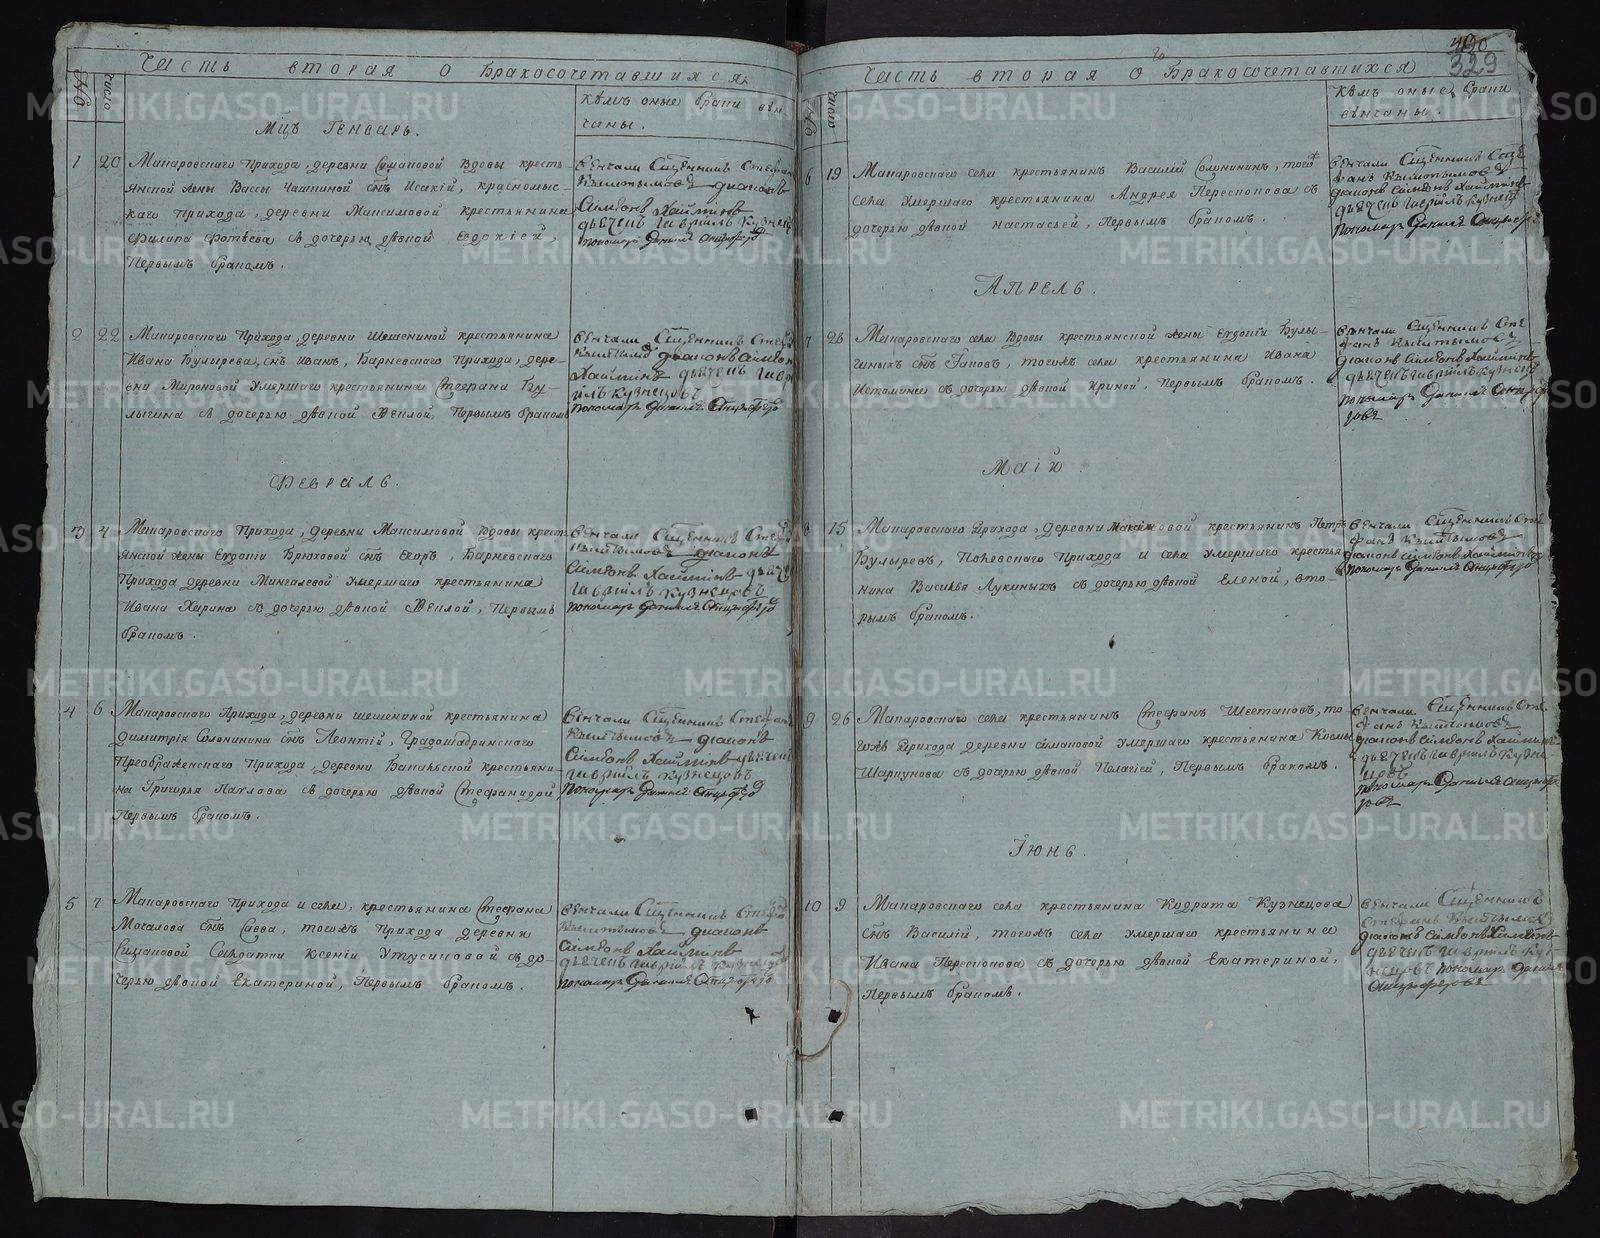 Часть вторая о бракосочетавшихся
число
Кѣмъ оные браки вѣн-
чаны.
Мцъ Генварь.
1 20 Макаровскаго прихода, деревни Симановой вдовы кресть-
янской жены Вассы Чашкиной снъ Исакій, красномыс-
каго прихода, деревни Максимовой крестьянина
Филипа Фотѣева съ дочерью дѣвкой Евдокіей,
Первымъ бракомъ.
вѣнчали Сщенникъ Стефанъ
Кыштымовъ діаконъ
Сімеонъ Хаймінъ
дьячекъ Гавріилъ Кузнец
пономарь Даниилъ
2 22 Макаровскаго прихода, деревни Шешениной крестьянина
Ивана Булырева, снъ Иванъ, Барневскаго прихода, дере-
вни Мироновой умершаго крестьянина Стефана Бу-
лыгина съ дочерью дѣвкой Ѳеклой, Первымъ бракомъ
вѣнчали Сщенникъ Стеф
Кыштымов діаконъ Сімеон
Хаймінъ дьячекъ Гавр
іилъ Кузнецовъ
пономарь Даниилъ
Февраль.
3 4 Макаровскаго прихода, деревни Максимовой вдовы кресть
янской жены Евдокіи Брюховой снъ Егоръ, Барневскаго
прихода деревни Мингалевой умершаго крестьянина
Ивана Харина съ дочерью дѣвкой Ѳеклой, Первымъ
бракомъ.
вѣнчали Сщенникъ Стеф
Кыштымовъ діаконъ
Сімеонъ Хаймінъ дьяче
Гавріилъ Кузнецовъ
пономарь Даниилъ
4 6 Макаровскаго прихода, деревни шешениной крестьянина
Димитрія Солонинина снъ Леонтій, Градошадринскаго
Преображенскаго прихода, деревни крестьяни-
на Григорья Павлова съ дочерью дѣвкой Стефанидой,
Первымъ бракомъ.
вѣнчали Сщенникъ Стефан
Кыштымовъ діаконъ
Сімеонъ Хаймінъ дьячекъ
Гавріилъ Кузнецовъ
пономарь Даниилъ
5 7 Макаровскаго прихода и села, крестьянина Стефана
снъ Савва, тогожъ прихода деревни
Солдатки Ксеніи Утусиковой съ до-
черью дѣвкой Екатериной, Первымъ бракомъ.
вѣнчали Сщенникъ Стефа
Кыштымовъ діаконъ
Сімеонъ Хаймінъ
дьячекъ Гавріилъ Кузнецо
пономарь Даниилъ
329
Часть вторая о бракосочетавшихся
число
Кѣмъ оные браки
вѣнчаны.
6 19 Макаровскаго села крестьянинъ Василій Солонинин, тогож
села умершаго крестьянина Андрея Переспонова съ
дочерью дѣвкой настасьей, Первымъ бракомъ.
вѣнчали Сщенникъ Сте
фанъ Кыштымовъ
діаконъ Сімеонъ Хаймінъ
дьячекъ Гавріилъ Кузнец
пономарь Даниилъ
Апрель.
7 28 Макаровскаго села вдовы крестьянской жены Евдокіи Булы-
гиныхъ снъ Іаковъ, тогожъ села крестьянина Ивана
Истомина съ дочерью дѣвкой Ириной, Первымъ бракомъ.
вѣнчали Сщенникъ Сте
фанъ Кыштымовъ
діаконъ Сімеонъ Хаймінъ
дьячекъ Гавріилъ Кузнец
пономарь Даниилъ
Маій
8 15 Макаровскаго прихода, деревни Максимовой крестьянинъ Петръ
Булыревъ, прихода и села умершаго крестья-
нина Василья Лукиныхъ съ дочерью дѣвкой Еленой, вто-
рымъ бракомъ.
вѣнчали Сщенникъ Сте
фанъ Кыштымовъ
діаконъ Сімеонъ Хаймінъ
пономарь Даниилъ
9 26 Макаровскаго села крестьянинъ Стефанъ Шестаковъ, то-
гожъ прихода деревни Симановой умершаго крестьянина Космы
Шаркунова съ дочерью дѣвкой Пелагіей, Первымъ бракомъ.
вѣнчали Сщенникъ Сте
фанъ Кыштымовъ
діаконъ Сімеонъ Хаймінъ
дьячекъ Гавріилъ Кузне
цовъ
пономарь Даниилъ
Іюнь.
10 9 Макаровскаго села крестьянина Кодрата Кузнецова
снъ Василій, тогожъ села умершаго крестьянина
Ивана Переспонова съ дочерью дѣвкой Екатериной,
Первымъ бракомъ.
вѣнчали Сщенникъ
Стефанъ Кыштымов
діаконъ Сімеонъ Хаймінъ
дьячекъ Гавріилъ Куз
нецовъ пономарь Даниил
METRIKI.GASO-URAL.RU